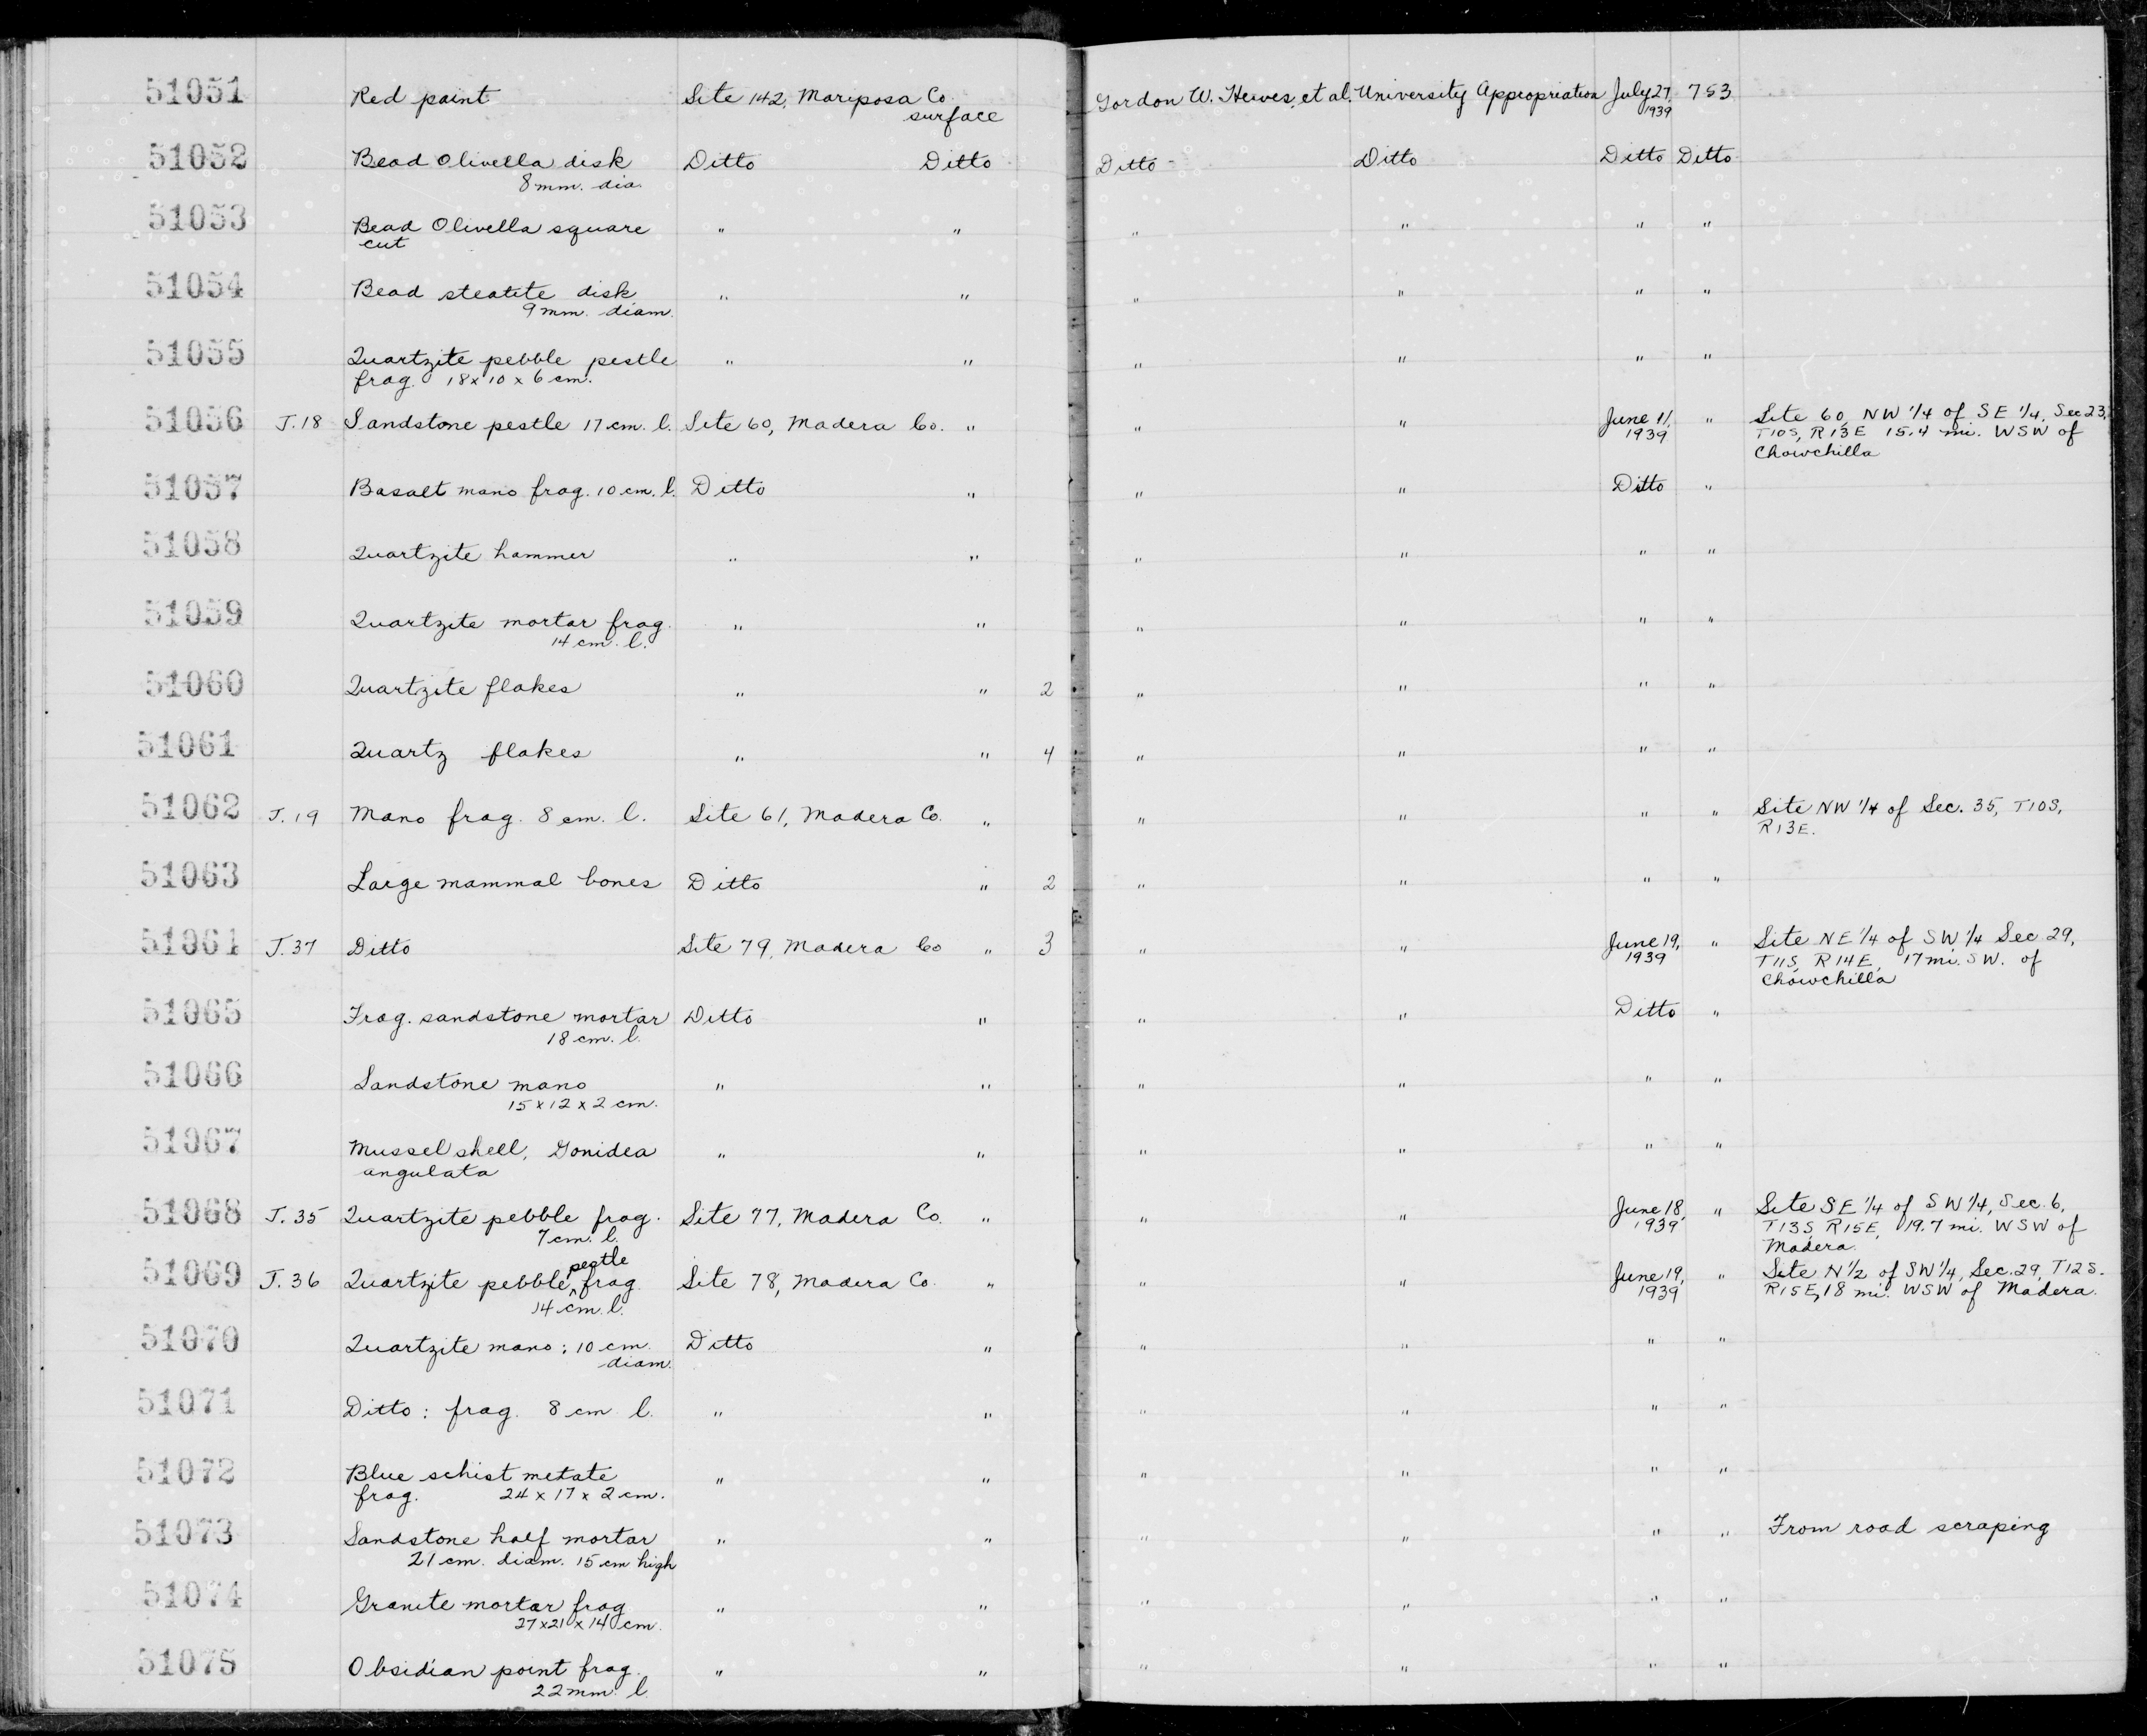 51051 Red paint Site 142, Mariposa Co. Gordon W. Hewes, et al. University Appropriation July 27, 753
surface 1939
51052 Bead Olivella disk Ditto Ditto Ditto Ditto Ditto Ditto
8 mm. dia.
51053 Bead Olivella square " " " " " "
cut
51054 Bead steatite disk " " " " " "
9 mm. diam.
51055 Quartzite pebble pestle " " " " " "
frag. 18 x 10 x 6 cm.
51056 J.18 Sandstone pestle 17 cm. l. Site 60, Madera Co. " " " June 11, " Site 60, NW 1/4 of SE 1/4, Sec 23,
1939 T10S, R13E 15.4 mi. WSW of
Chowchilla
51057 Basalt mano frag. 10 cm. l. Ditto " " " Ditto "
51058 Quartzite hammer " " " " " "
51059 Quartzite mortar frag. " " " " " "
14 cm. l.
51060 Quartzite flakes " " 2 " " " "
51061 Quartz flakes " " 4 " " " "
51062 J.19 Mano frag. 8 cm. l. Site 61, Madera Co. " " " " " Site NW 1/4 of Sec. 35, T10S,
R13E.
51063 Large mammal bones Ditto " 2 " " " "
51064 J.37 Ditto Site 79, Madera Co " 3 " " June 19, " Site NE 1/4 of SW 1/4 Sec 29,
1939 T11S, R14E, 17 mi. SW. of
Chowchilla
51065 Frag. sandstone mortar Ditto " " " Ditto "
18 cm. l.
51066 Sandstone mano " " " " " "
15 x 12 x 2 cm.
51067 Mussel shell, Gonidea " " " " " "
angulata
51068 J.35 Quartzite pebble frag. Site 77, Madera Co. " " " June 18, " Site SE 1/4 of SW 1/4, Sec. 6,
7 cm. l. 1939 T13S, R15E, 19.7 mi. WSW of
Madera.
pestle
51069 J.36 Quartzite pebble ^ frag. Site 78, Madera Co. " " " June 19, " Site N 1/2 of SW 1/4, Sec. 29, T12S.
14 cm. l. 1939 R15E, 18 mi. WSW of Madera.
51070 Quartzite mano: 10 cm. Ditto " " " " "
diam.
51071 Ditto: frag. 8 cm l. " " " " " "
51072 Blue schist metate " " " " " "
frag. 24 x 17 x 2 cm.
51073 Sandstone half mortar " " " " " " From road scraping
21 cm. diam. 15 cm high
51074 Granite mortar frag " " " " " "
27 x 21 x 14 cm.
51075 Obsidian point frag. " " " " " "
22 mm. l